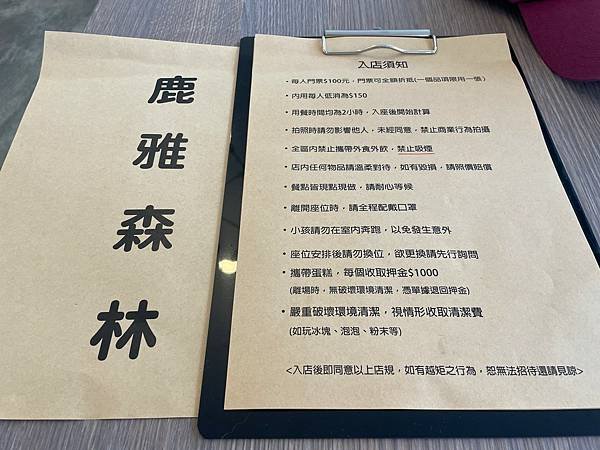 鹿
雅
森
林
入店須知
・每人門票$100元，門票可全額折抵(一個品項限用一張)
・內用每人低消為$150
・用餐時間均為2小時，入座後開始計算
・拍照時請勿影響他人，未經同意，禁止商業行為拍攝
・全區內禁止攜帶外食外飲，禁止吸煙
・店內任何物品請溫柔對待，如有毀損，請照價賠償
・餐點皆現點現做，請耐心等候
・離開座位時，請全程配戴口罩
・小孩請勿在室內奔跑，以免發生意外
・座位安排後請勿換位，欲更換請先行詢問
・攜帶蛋糕，每個收取押金$1000
(離場時，無破壞環境清潔，憑單據退回押金)
・嚴重破壞環境清潔，視情形收取清潔費
(如玩冰塊、泡泡、粉末等)
<入店後即同意以上店規，如有越矩之行為，恕無法招待還請見諒>